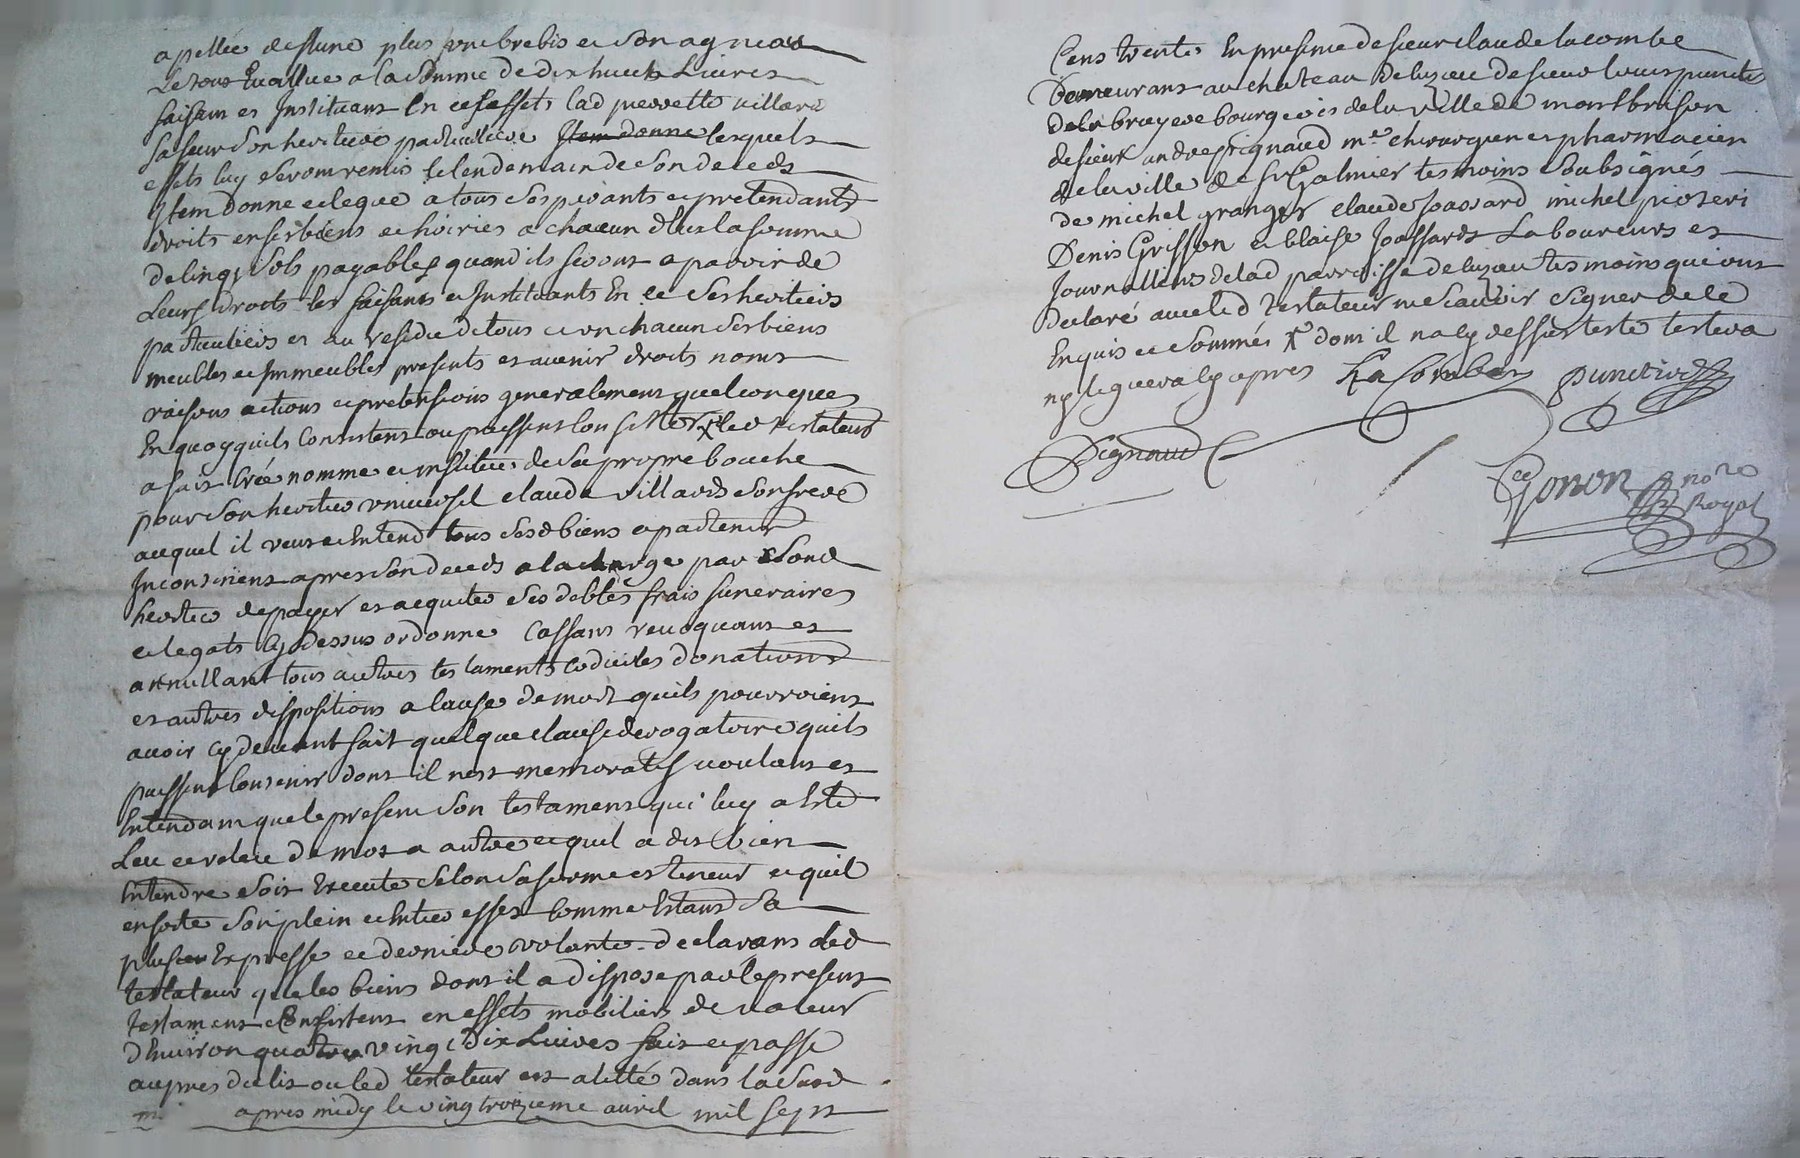 apellée desluné plus une brebis et son agneau
le tout Evallué a la somme de dix huict Livres
faisant et Instituant En ces effets lad pierrette villard
sa seur son heritiere particuliere Item donne lesquels
effets luy seront remis le lendemain de son deceds
Item donne et legue a tous ses parants et pretendants
droits en ses biens et hoiries a chacun d'Eux la somme
de cinq sols payables quand ils feront aparoir de
Leurs droits les faisants et Instituants En ce ses heritiers
particuliers et au residu de tous et un chacun ses biens
meubles et Immeubles presents et avenir droits noms
raisons actions et pretensions generalement quelconques
En quoy quils Consistent ou puissent consister led testateur
a fait créé nomme et institue de sa propre bouche
pour son heritier universel claude villards son frere
auquel il veut et Entend tous ses biens apartenir
Incontinent apres son deceds a la charge par sond
heritier de payer et acquiter ses debtes frais funeraires
et legats cy dessus ordonne Cassant revoquant et
annullant tous autres testaments codiciles donations
et autres dispositions a cause de mort quils pourroient
avoir cy devant fait quelque clause derogatoire quils
puissent contenir dont il nest memoratif voulant et
Entendant que le present son testament qui luy a Esté
Leu et releu de mot a autre et quil a dit bien
Entendre soit Executé selon sa forme et teneur et quil
en sorte son plein et Entier effet comme Estant sa
plus Expresse et derniere volonté declarant led
testateur que les biens dont il a disposé par le present
testament Consistent en effets mobiliers de valeur
d'Environ quatre vingt dix Livres fait et passé
aupres du lit ou led testateur est alitté dans la susd
apres midy le vingt troizieme avril mil sept
Cens trente En presence de sieur claude lacombe
demeurant au chateau de luzieu de sieur louis punctis
dela bruyere bourgeois de la ville de montbrison
de sieur andre pignaud me chirurgien et pharmacien
de la ville de st Galmier tesmoins soubsignés
de michel granger claude Joassard michel
Denis Grisson et blaise Joassards Laboureurs et
Journalliers de lad parroisse de luzieu tesmoins qui ont
declaré avec led testateur ne scavoir signer de ce
Enquis et sommés dont il na
apres Lacombe punctis
Pignaud
Gonon nore
Royal